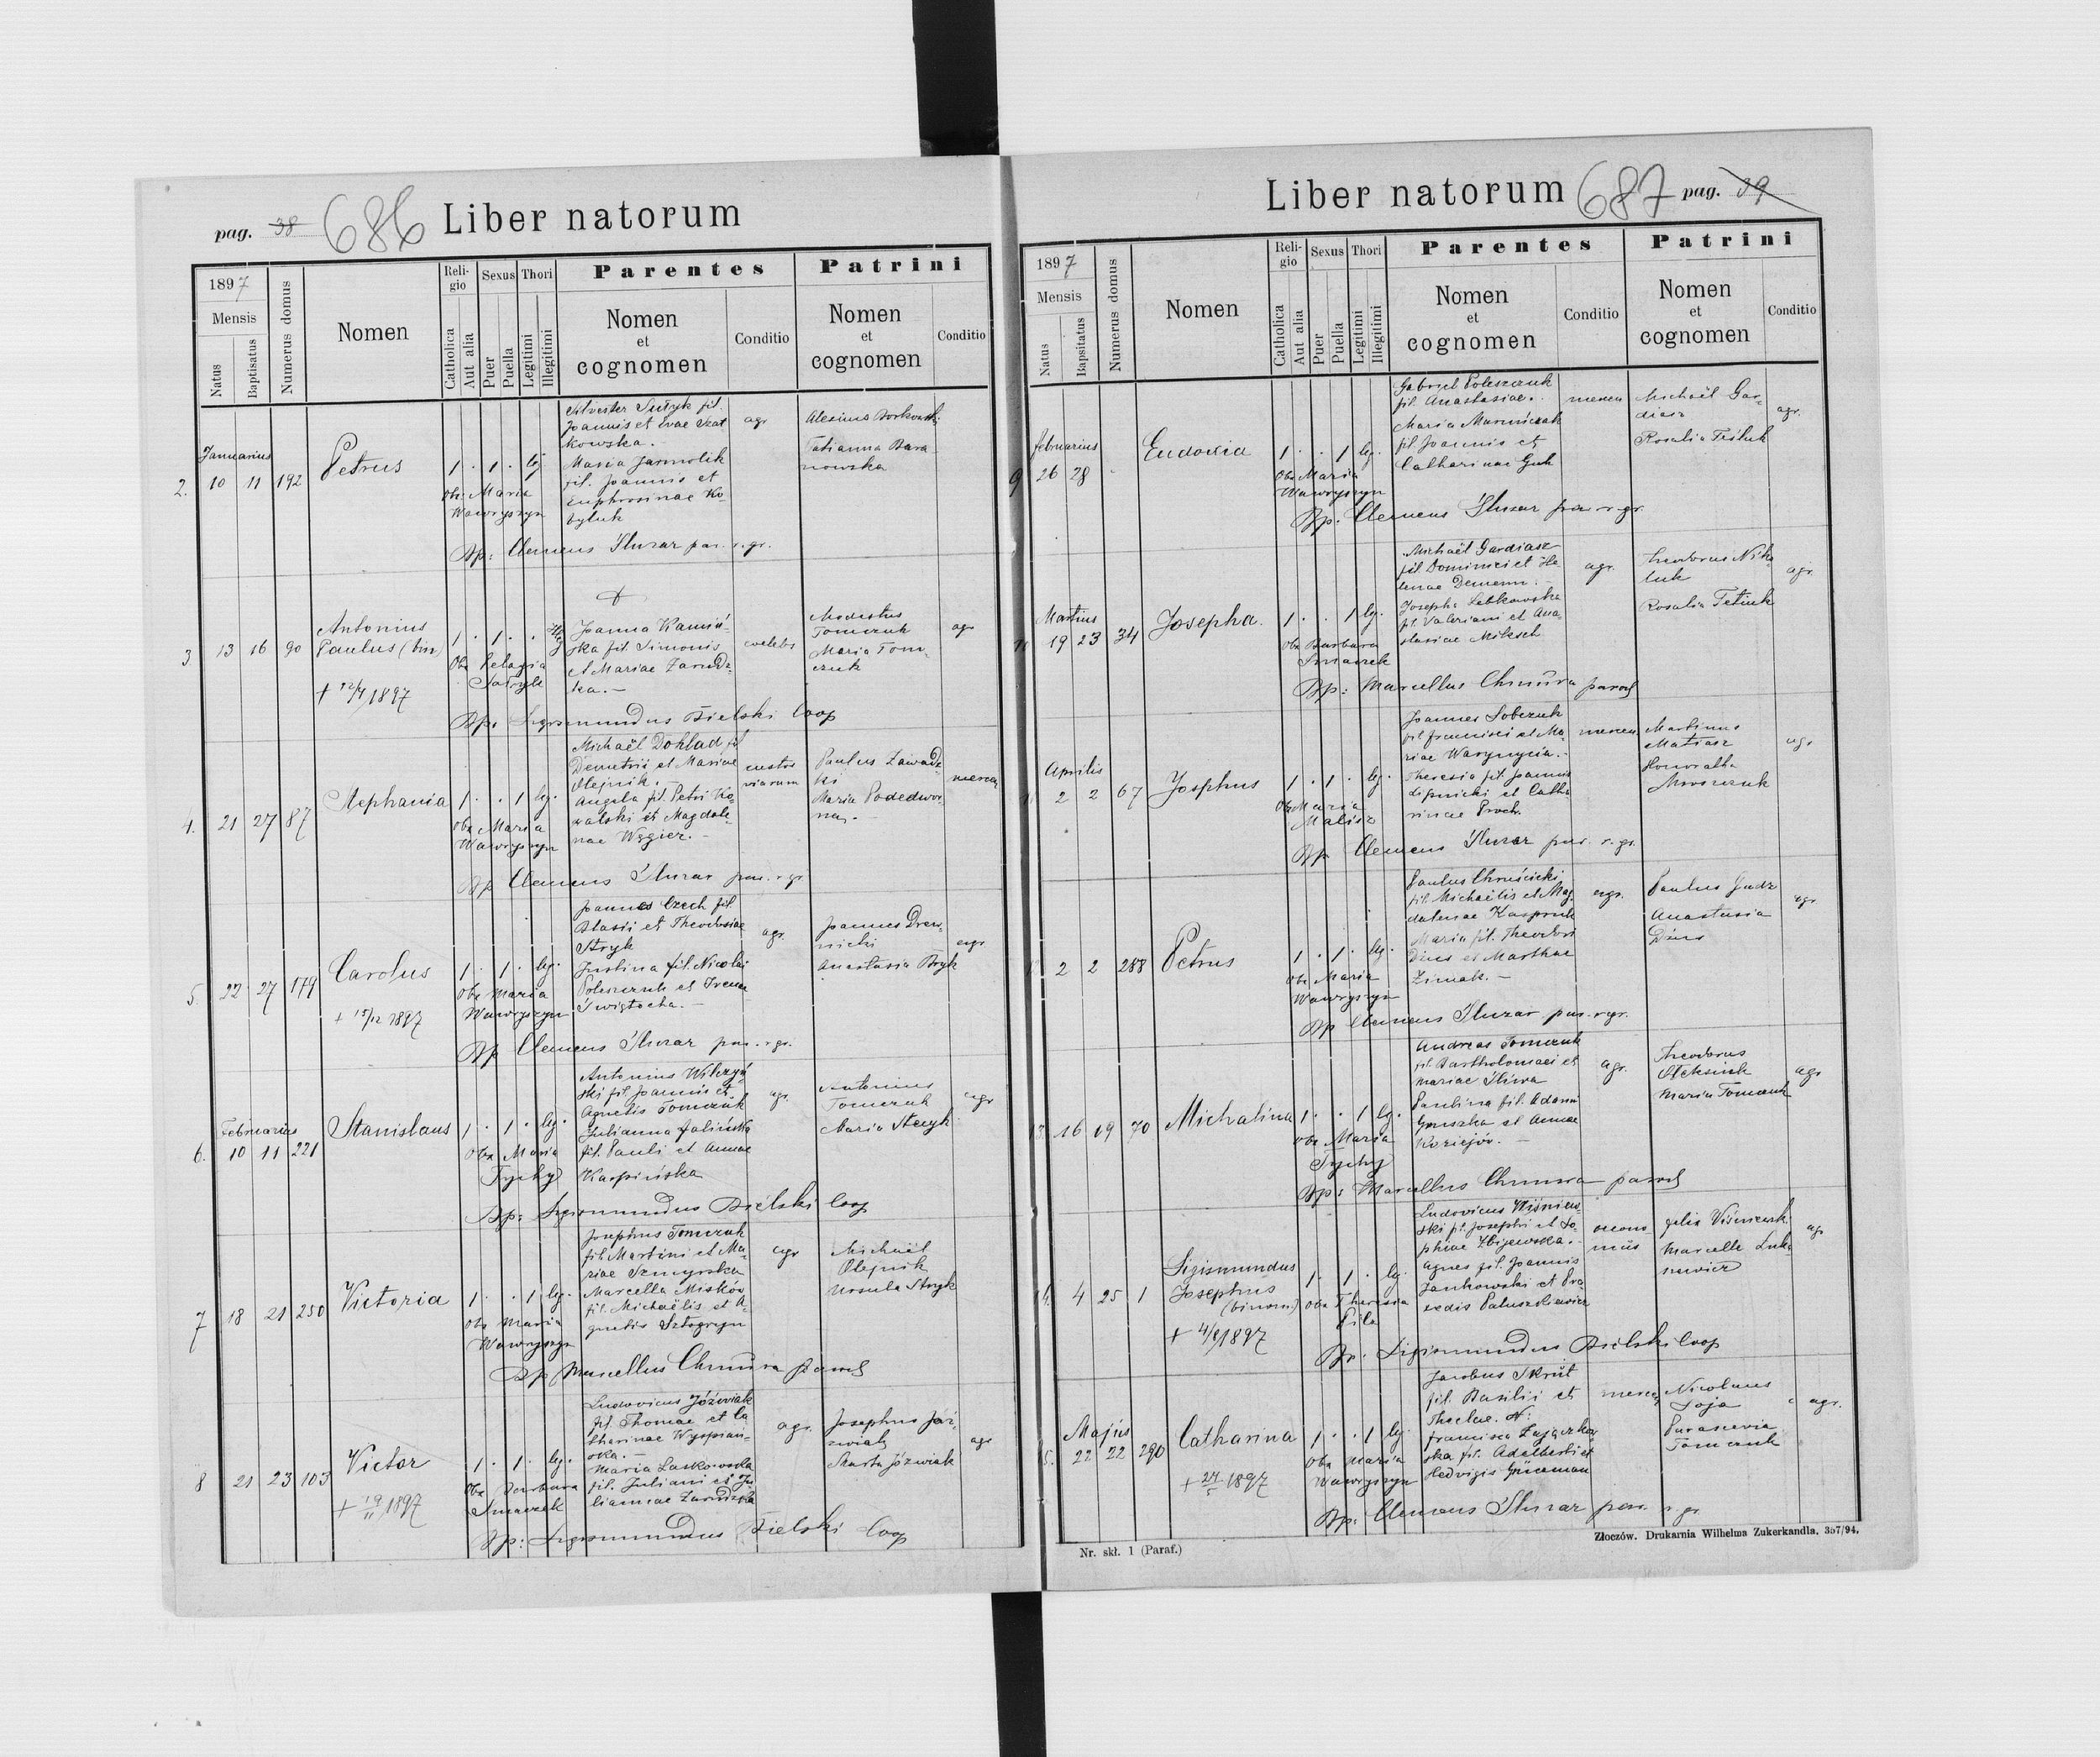 pag. 38 686 Liber natorum
1897
Mensis
Natus
Baptisatus
Numerus domus
Nomen
Religio
Catholica
Aut alia
Sexus
Puer
Puella
Thori
Legitimi
Illegitimi
Parentes
Nomen
et
cognomen
Conditio
Patrini
Nomen
et
cognomen
Conditio
2.
Januarius
10 11 192
Petrus
1 . 1 . leg
Obs. Maria
Wawryszyn
Silvester
Joannis et Evae Szat
kowska.-
Maria Jarmolik
fil. Joannis et
Euphrosinae Ko-
byluk
agr
Alexius Borkowski
Tatianna Bara
nowska
Bp: Clemens Sluzar par. r. gr.
3 13 16 90
Antonius
Paulus (bin)
+ 12/4 1897
1 . 1 .
Obs Pelagia
Joanna Kamiń-
ska fil. Simonis
et Mariae Zarudz-
ka.-
coelebs
Modestus
Tomczuk
Maria Tom-
czuk
agr
Bp. Sigismundus Bielski Coop
4. 21 27 87
Stephania
1 . . 1 leg.
Obs Maria
Wawryszyn
Michaël Dokład fil
Demetrii et Mariae
Olejnik.-
Angela fil. Petri Ko-
walski et Magdale-
nae Węgier.-
custos
viarum
Paulus Zawadz-
ki
Maria Podedwor-
na.-
mercen
Bp Clemens Sluzar par. r. gr
5 22 27 179
Carolus
+ 15/12 1897
1 . 1 . leg.
Obs Maria
Wawryszyn
Joannes Czech fil.
Blasii et Theodosiae
Stryk
Justina fil. Nicolai
Poleszczuk et Irenae
Swiętocha.-
agr.
Joannes Drew-
nicki
Anastasia Bryk
agr
Bp Clemens Sluzar par. r. gr.
6.
Februarius
10 11 221
Stanislaus
1 . 1 . leg.
Obs Maria
Tychy
Antonius Wilczyń
ski fil. Joannis et
Agnetis Tomczuk
Julianna Jalińska
fil. Pauli et Annae
Karpińska
agr.
Antonius
Tomczuk
Maria Stecyk
agr
Bp: Sigismundus Bielski Coop
7 18 21 250
Victoria
1 . . 1 leg.
Obs Maria
Wawryszyn
Josephus Tomczuk
fil. Martini et Ma-
riae Szmyrska
Marcella Misków
fil. Michaëlis et A-
gnetis Sztogryn
agr
Michaël
Olejnik
Ursula Stryk
Bp Marcellus Chmura paroch
8 21 23 103
Victor
+ 19/11 1897
1 . 1 . leg.
Obs Barbara
Smaczek
Ludovicus Józwiak
fil. Thomae et Ca
tharinae Wyspiań-
ska.-
Maria Laskowska
fil. Juliani et Ju
liannae Zarudzka
agr.
Josephus Jóź-
wiak
Marta Józwiak
agr
Bp: Sigismundus Bielski Coop
Liber natorum 687 pag. 39
1897
Mensis
Natus
Bapsitatus
Numerus domus
Nomen
Religio
Catholica
Aut alia
Sexus
Puer
Puella
Thori
Legitimi
Illegitimi
Parentes
Nomen
et
cognomen
Conditio
Patrini
Nomen
et
cognomen
Conditio
9
Februarius
26 28
Eudoxia
1 . . 1 leg.
Obs Maria
Wawryszyn
Gabriel Poleszczuk
fil. Anastasiae.
Maria
fil Joannis et
Catharinae Guk
mercen
Michaël Gar-
diasz
Rosalia
agr.
Bp. Clemens Sluzar par r. gr.
Martius
19 23 34
Josepha.
1 . . 1 leg.
Obs Barbara
Smaczek
Michaël Gardiasz
fil Dominici et He-
lenae
Josepha Lebkowska
fil. Valeriani et Ana-
stasiae Miksch
agr.
Theodorus Niko
luk
Rosalia
agr.
Bp: Marcellus Chmura paroch
Aprilis
2 2 67
Josphus
1 . 1 . leg.
Obs Maria
Malisz
Joannes Sobczuk
fil Francisci et Ma-
riae
Theresia fil. Joannis
Lipnicki et Catha-
rinae Proch.
mercen
Martinus
Matiasz
Honoratha
Mroszczuk
agr
Bp Clemens Sluzar par. r. gr.
2 2 288
Petrus
1 . 1 . leg.
Obs Maria
Wawryszyn
Paulus Chruścicki
fil. Michaëlis et Mag-
dalenae Kaspruk
Maria fil. Theodori
Dius et Marthae
Zimak.-
agr.
Paulus Gudz
Anastasia
Dzius
agr.
Bp Clemens Sluzar par. r. gr.
13. 16 19 70
Michalina
1 . . 1 leg.
Obs Maria
Tychy
Andreas Tomczuk
fil. Bartholomaei et
Mariae Sliwa
Paulina fil. Adami
Gruszka et Annae
Koziejów.-
agr.
Theodorus
Oleksiuk
Maria Tomczuk
agr
Bp: Marcellus Chmura paroch
14. 4 25 1
Sigismundus
Josephus
(binom)
+ 4/8 1897
1 . 1 . leg.
Obs Theresia
Pila
Ludovicus Wiśniew-
ski fil. Josephi et So-
phiae Zbijewska.-
Agnes fil. Joannis
Jankowski et Pra
xedis Paluszkiewicz
oecono-
mus
Felix
Marcella Luka-
siewicz
agr
Bp: Sigismundus Bielski Coop
15.
Majus
22 22 290
Catharina
+ 24/5 1897
1 . . 1 leg
Obs Maria
Wawryszyn
Jacobus Skrut
fil. Basilii et
Theclae. N:
Francisca Zajączkow-
ska fil. Adalberti et
Hedvigis
mercen
Nicolaus
Soja
Parascevia
Tomczuk
agr.
Bp: Clemens Sluzar par. r. gr
Nr. skł. 1 (Paraf.)
Złoczów. Drukarnia Wilhelma Zukerkandla. 357/94.